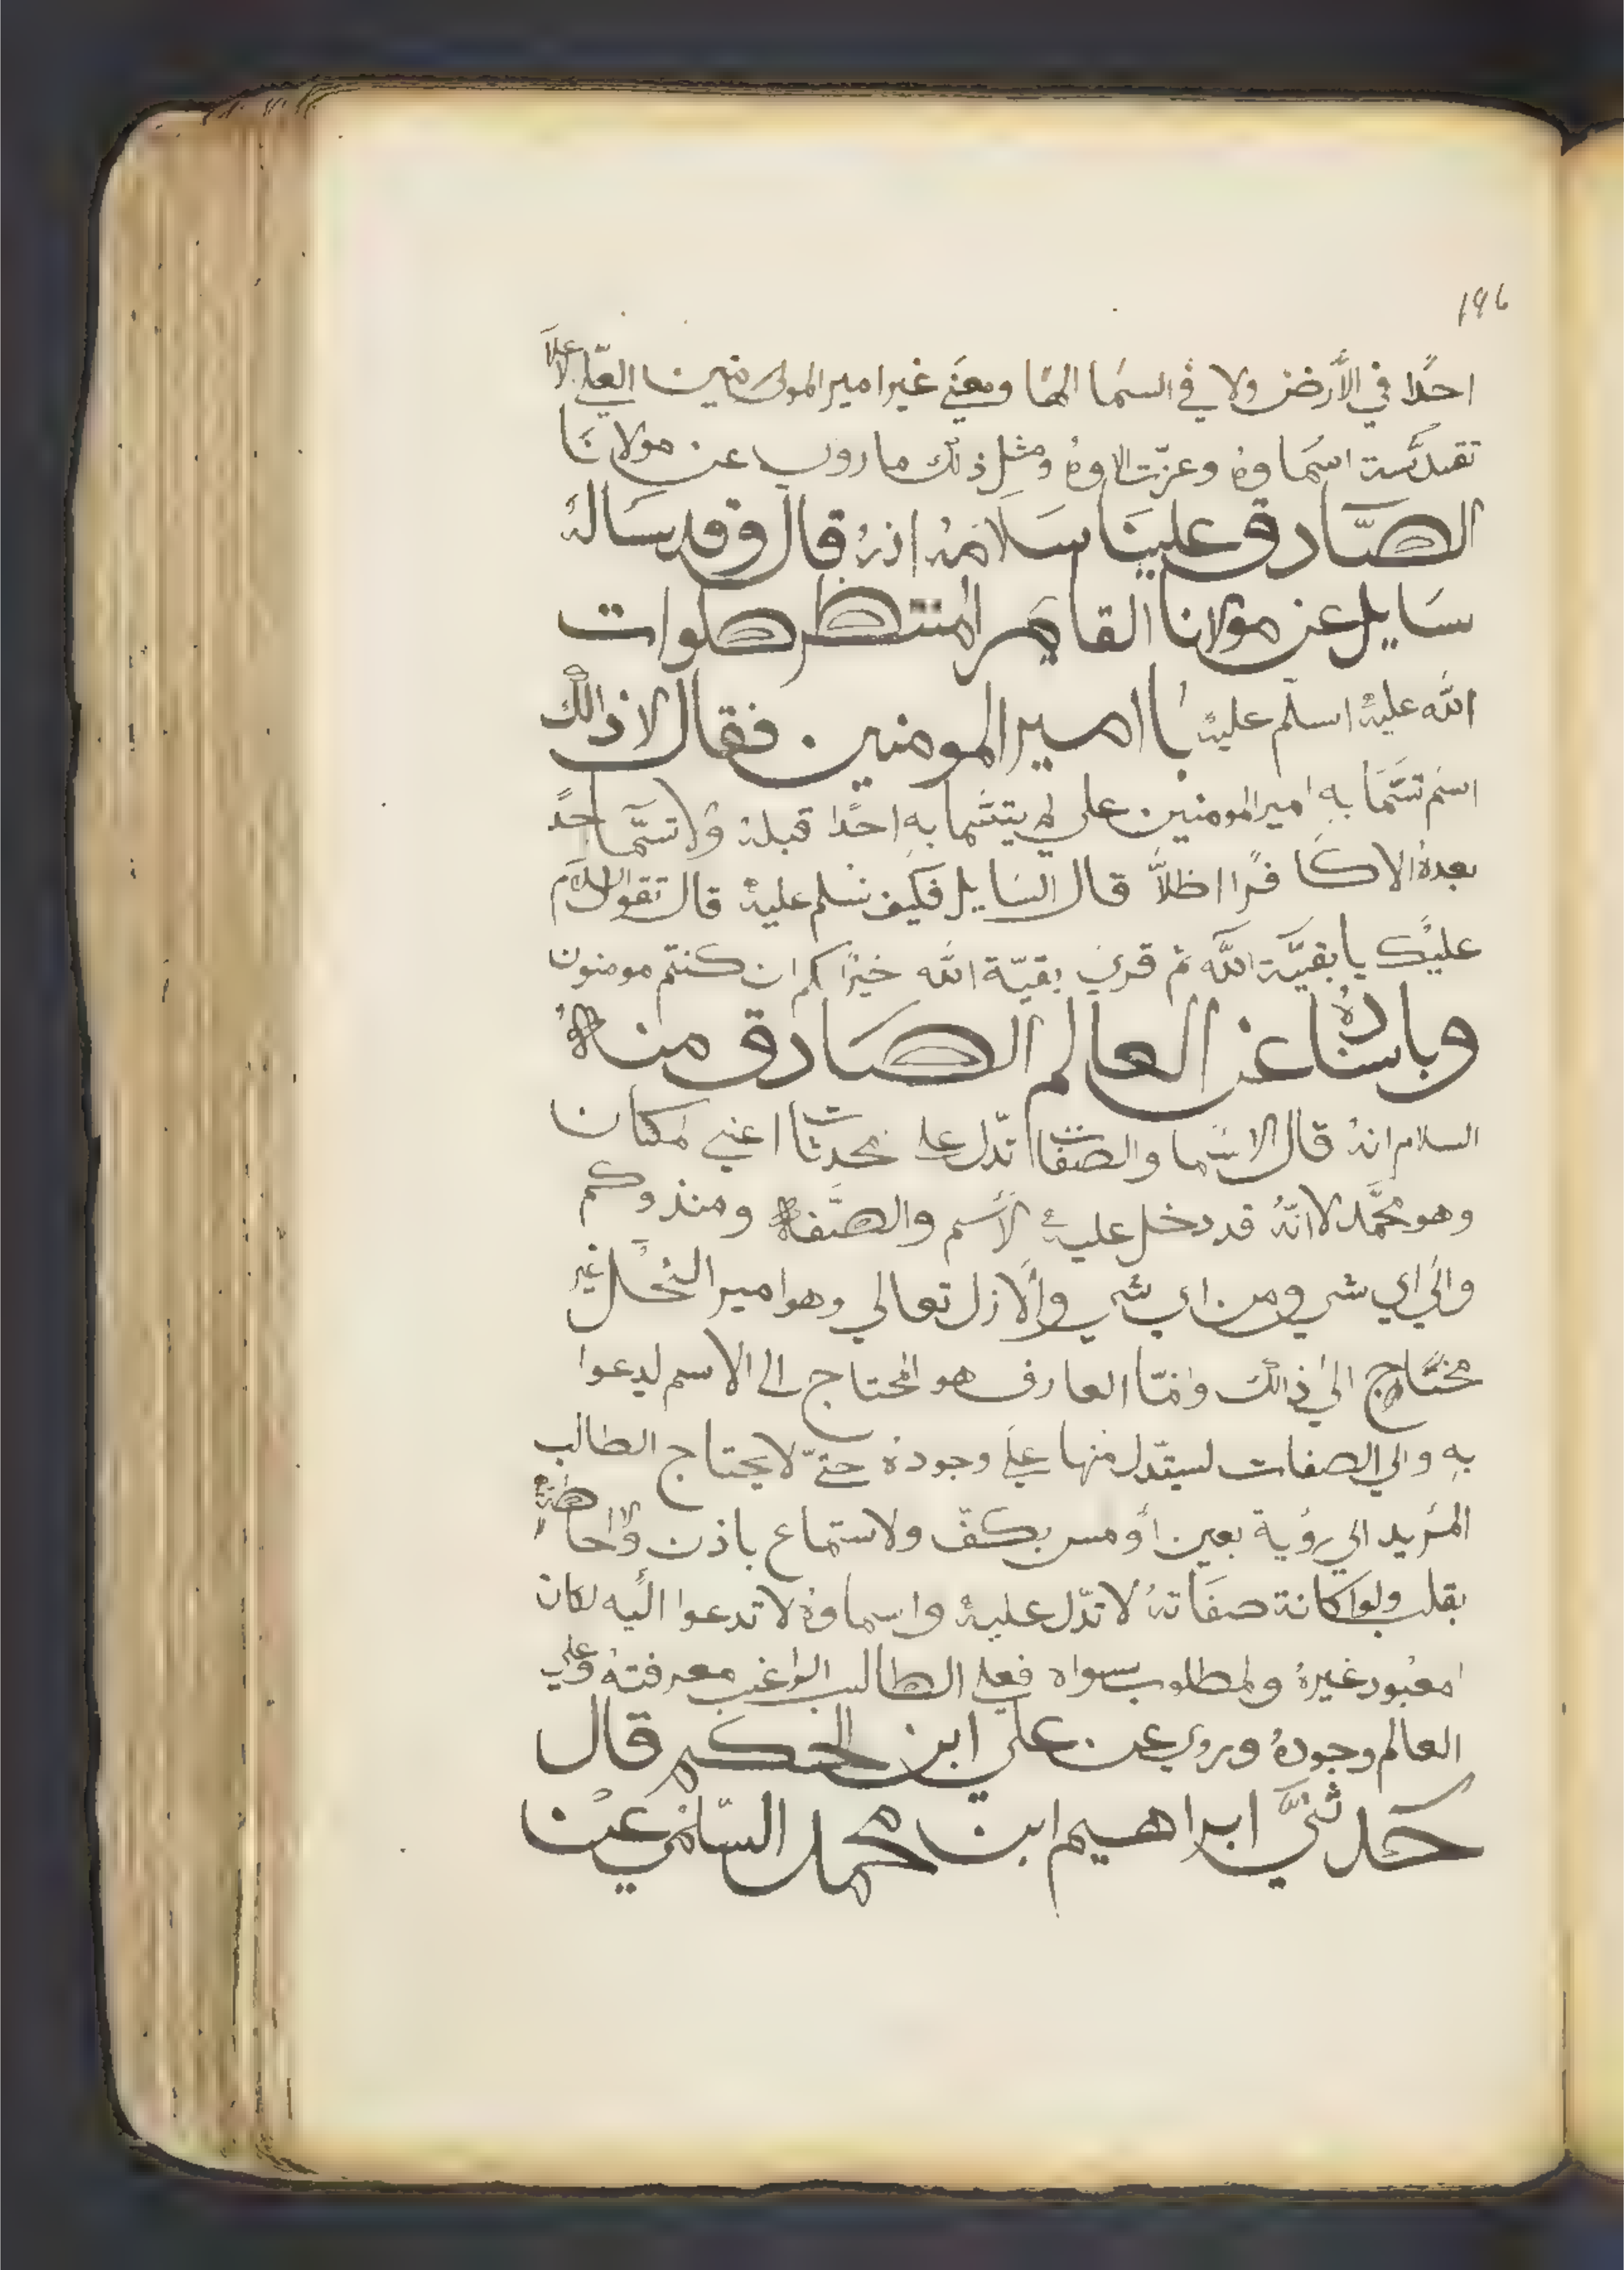 ١٩٦
احدًا في الأرض ولا في السما الهًا ومعني غير امير المومنين العلي علا
تقدّسة اسماوهُ وعزّت الاوهُ ومثل ذلك ما روي عن مولانَا
الصَّادق علينَا سَلامهُ انهُ قال وقد سَالهُ
سَايل عن مولانا القايم المنتظر صلوات
الله عليهُ اسلّم عليهُ يا امير المومنين فقال لا ذالك
اسم تسَّمَا بهِ امير المومنين علي لم يتسّما بهِ احدًا قبلهُ ولا تسَّما احدً
بعدهُ الا كافرًا اظلاَّ قال السَايل فكيف نسلم عليهُ قال تقول السلام
عليك يا بقيَّة اللَّه ثم قري بقيّة الله خيرًا لكم ان كنتم مومنون
وباسنادهُ عن العالم الصَادق منهُ
السلام انهُ قال الاسما والصفات تدّل علي محدثات اعني لمكان
وهو محمَّد لانّهُ قد دخل عليهُ الأسم والصَّفة ومنذ وكم
والي اي شي ومن اي شي والأزل تعالي وهو امير النحل غير
محتاج الي ذالك وانمّا العارف هو المحتاج الي الاسم ليدعوا
بهِ والي الصفات ليستدّل منها علي وجودهُ حتّي لا يحتاج الطالب
المريد الي رؤية بعين أو مس بكفّ ولاستماع باذن ولااحاطة
بقلب ولو كانة صفَاتهُ لا تدّل عليهُ واسماوهُ لا تدعوا اليه لكان
امعبود غيرهُ ولمطلوب سواه فعلي الطالب الراغب معرفتهُ وعلي
العالم وجودهُ وروي عن علي ابن الحكم قال
حَدثنيَّ ابراهيم ابن محمد السّلمي عن